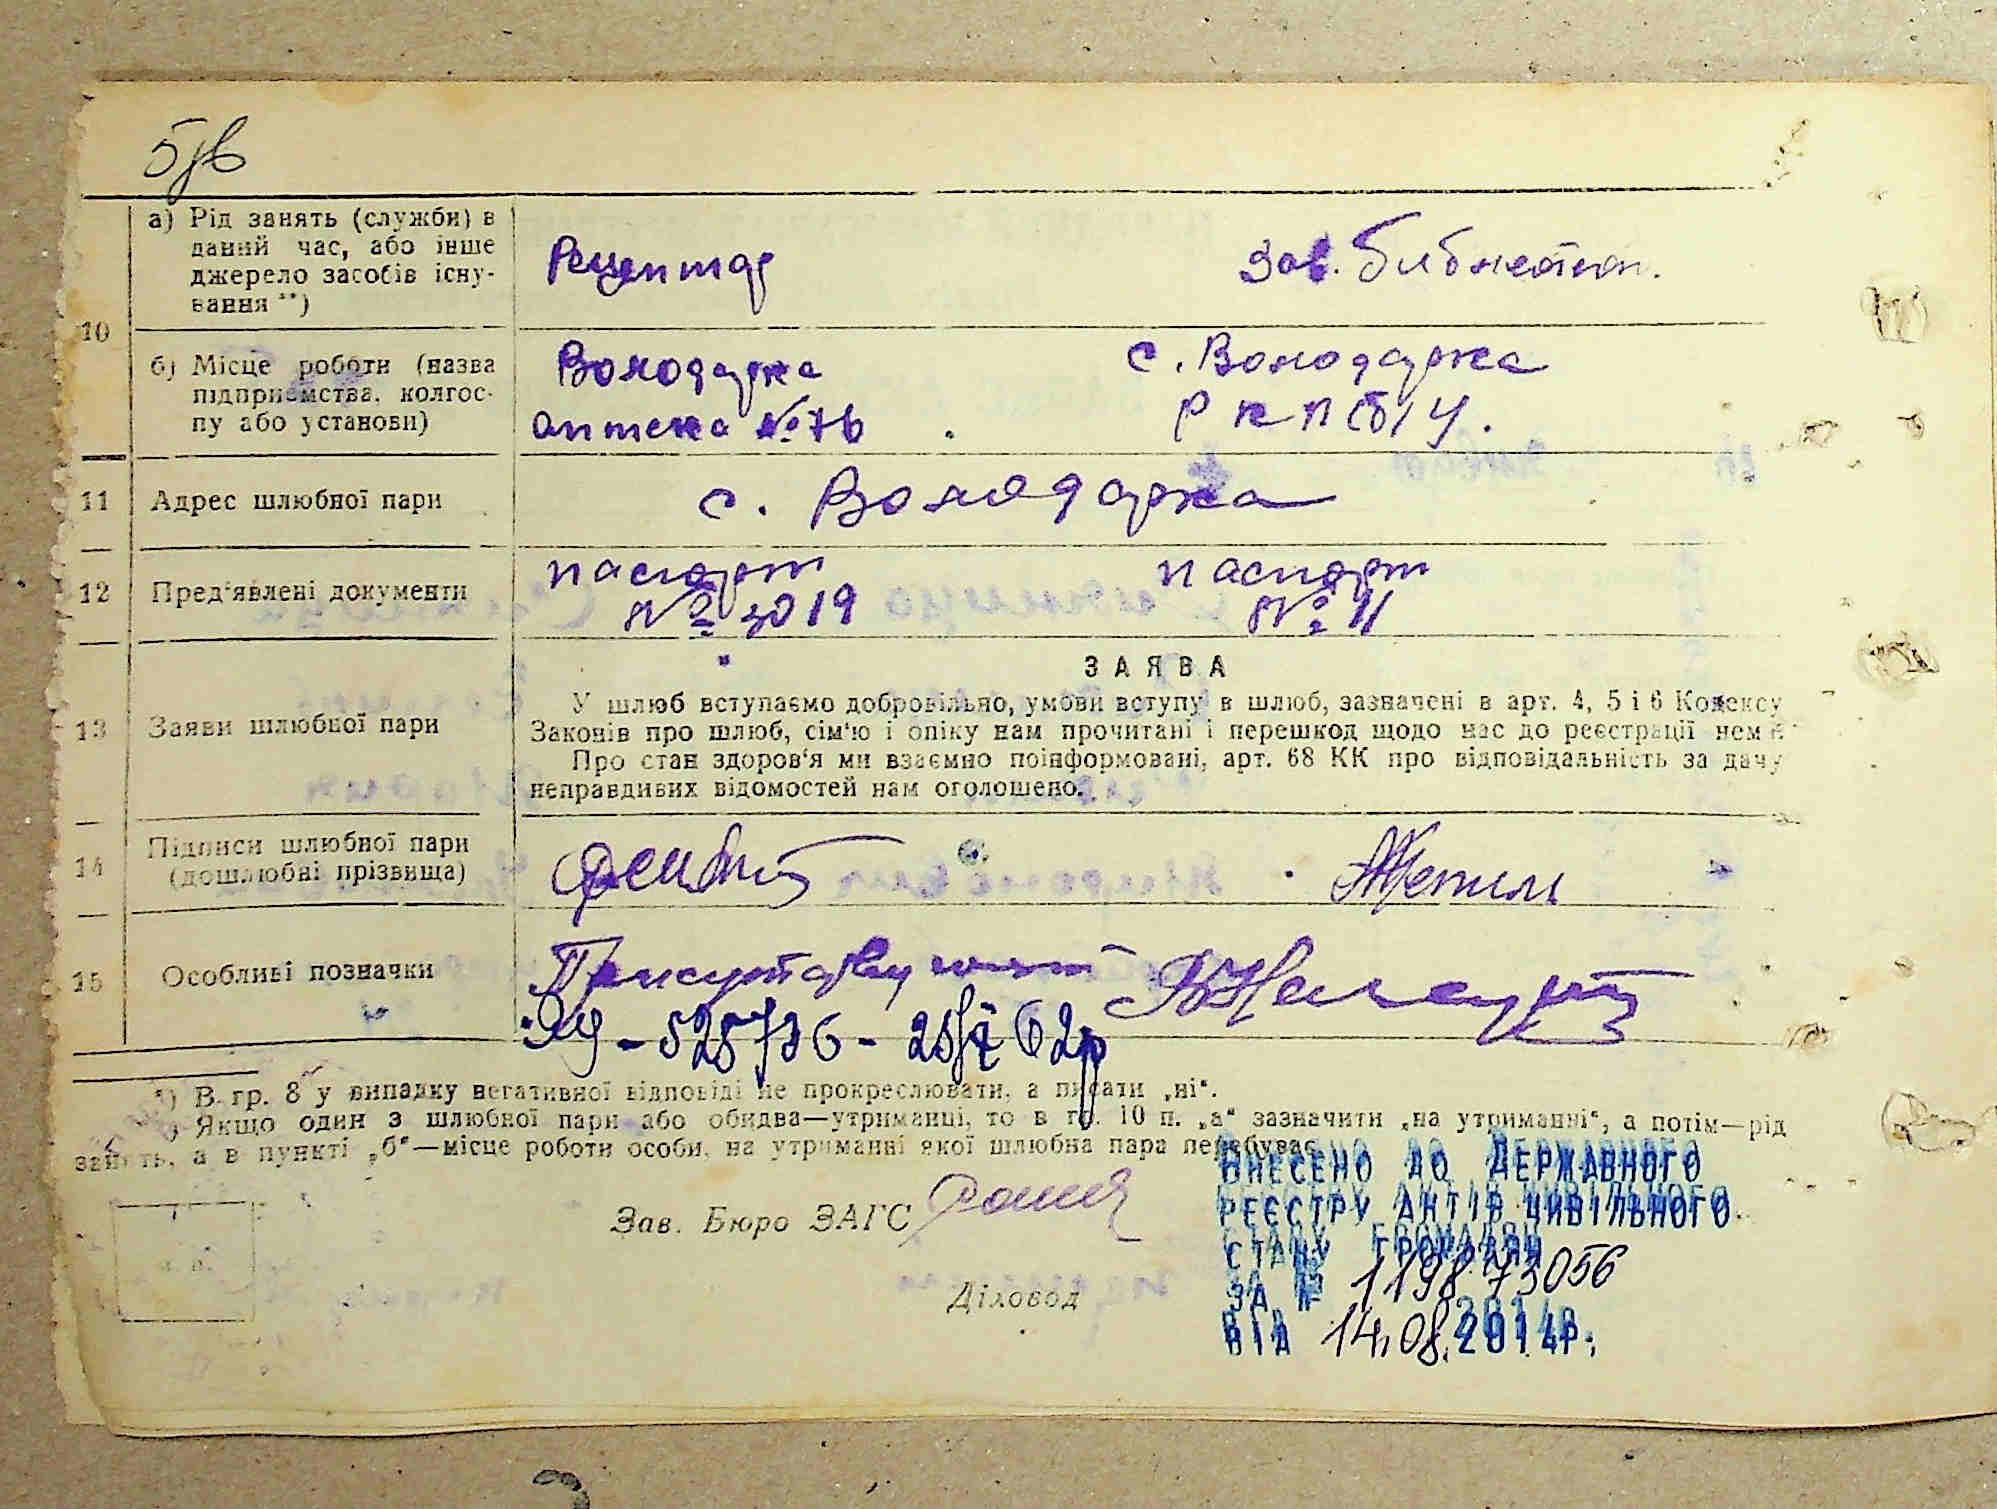 а) Рід занять (служби) в
даний час, або інше
джерело засобів існу-
вання **)
Рецептар
Зав. библиотек.
10
б) Місце роботи (назва
підприємства, колгос-
пу або установи)
Володарка
Аптека № 76
с. Володарка
Р К П(б)У.
11 Адрес шлюбної пари
с. Володарка
12 Пред'явлені документи
паспорт
№ 3019
паспорт
№ 11
13 Заяви шлюбної пари
ЗАЯВА
У шлюб вступаємо добровільно, умови вступу в шлюб, зазначені в арт. 4, 5 і 6 Кодексу
Законів про шлюб, сім'ю і опіку нам прочитані і перешкод щодо нас до реєстрації нема
Про стан здоров'я ми взаємно поінформовані, арт. 68 КК про відповідальність за дачу
неправдивих відомостей нам оголошено.
14 Підписи шлюбної пари
(дошлюбні прізвища)
15 Особливі позначки
*) В гр. 8 у випадку негативної відповіді не прокреслювати, а писати „ні“.
) Якщо один з шлюбної пари або обидва—утриманці, то в гр. 10 п. „а“ зазначити „на утриманні“, а потім—рід
занять, а в пункті „б“—місце роботи особи, на утриманні якої шлюбна пара перебуває
Зав. Бюро ЗАГС
Діловод
ВНЕСЕНО ДО ДЕРЖАВНОГО
РЕЄСТРУ АКТІВ ЦИВІЛЬНОГО
СТАНУ ГРОМАДЯН
ЗА № 119873056
ВІД 14.08.2014р.